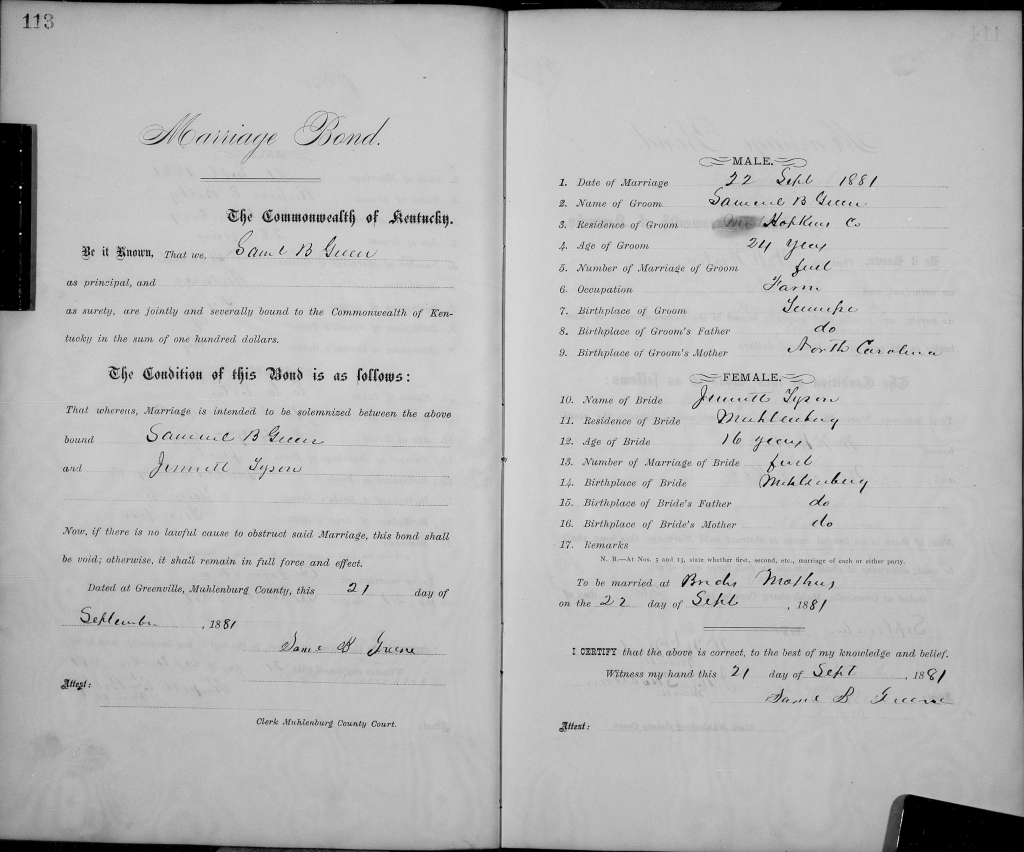 113
Marriage Bond.
The Commonwealth of Kentucky.
Be it Known, That we, Saml B Green
as principal, and
as surety, are jointly and severally bound to the Commonwealth of Ken-
tucky in the sum of one hundred dollars.
The Condition of this Bond is as follows:
That whereas, Marriage is intended to be solemnized between the above
bound Samuel B Green
and Jennett Tyson
Now, if there is no lawful cause to obstruct said Marriage, this bond shall
be void; otherwise, it shall remain in full force and effect.
Dated at Greenville, Muhlenburg County, this 21 day of
September, 1881
Saml B Greene
Attest:
Clerk Muhlenburg County Court.
MALE.
1. Date of Marriage 22 Sept 1881
2. Name of Groom Samuel B Green
3. Residence of Groom Hopkins Co
4. Age of Groom 24 years
5. Number of Marriage of Groom first
6. Occupation Farm
7. Birthplace of Groom Tennessee
8. Birthplace of Groom's Father do
9. Birthplace of Groom's Mother North Carolina
FEMALE.
10. Name of Bride Jennett Tyson
11. Residence of Bride Muhlenburg
12. Age of Bride 16 years
13. Number of Marriage of Bride first
14. Birthplace of Bride Muhlenburg
15. Birthplace of Bride's Father do
16. Birthplace of Bride's Mother do
17. Remarks
N. B.—At Nos. 5 and 13, state whether first, second, etc., marriage of each or either party.
To be married at Brides Mothers
on the 22 day of Sept, 1881
I CERTIFY that the above is correct, to the best of my knowledge and belief.
Witness my hand this 21 day of Sept, 1881
Saml B Greene
Attest: